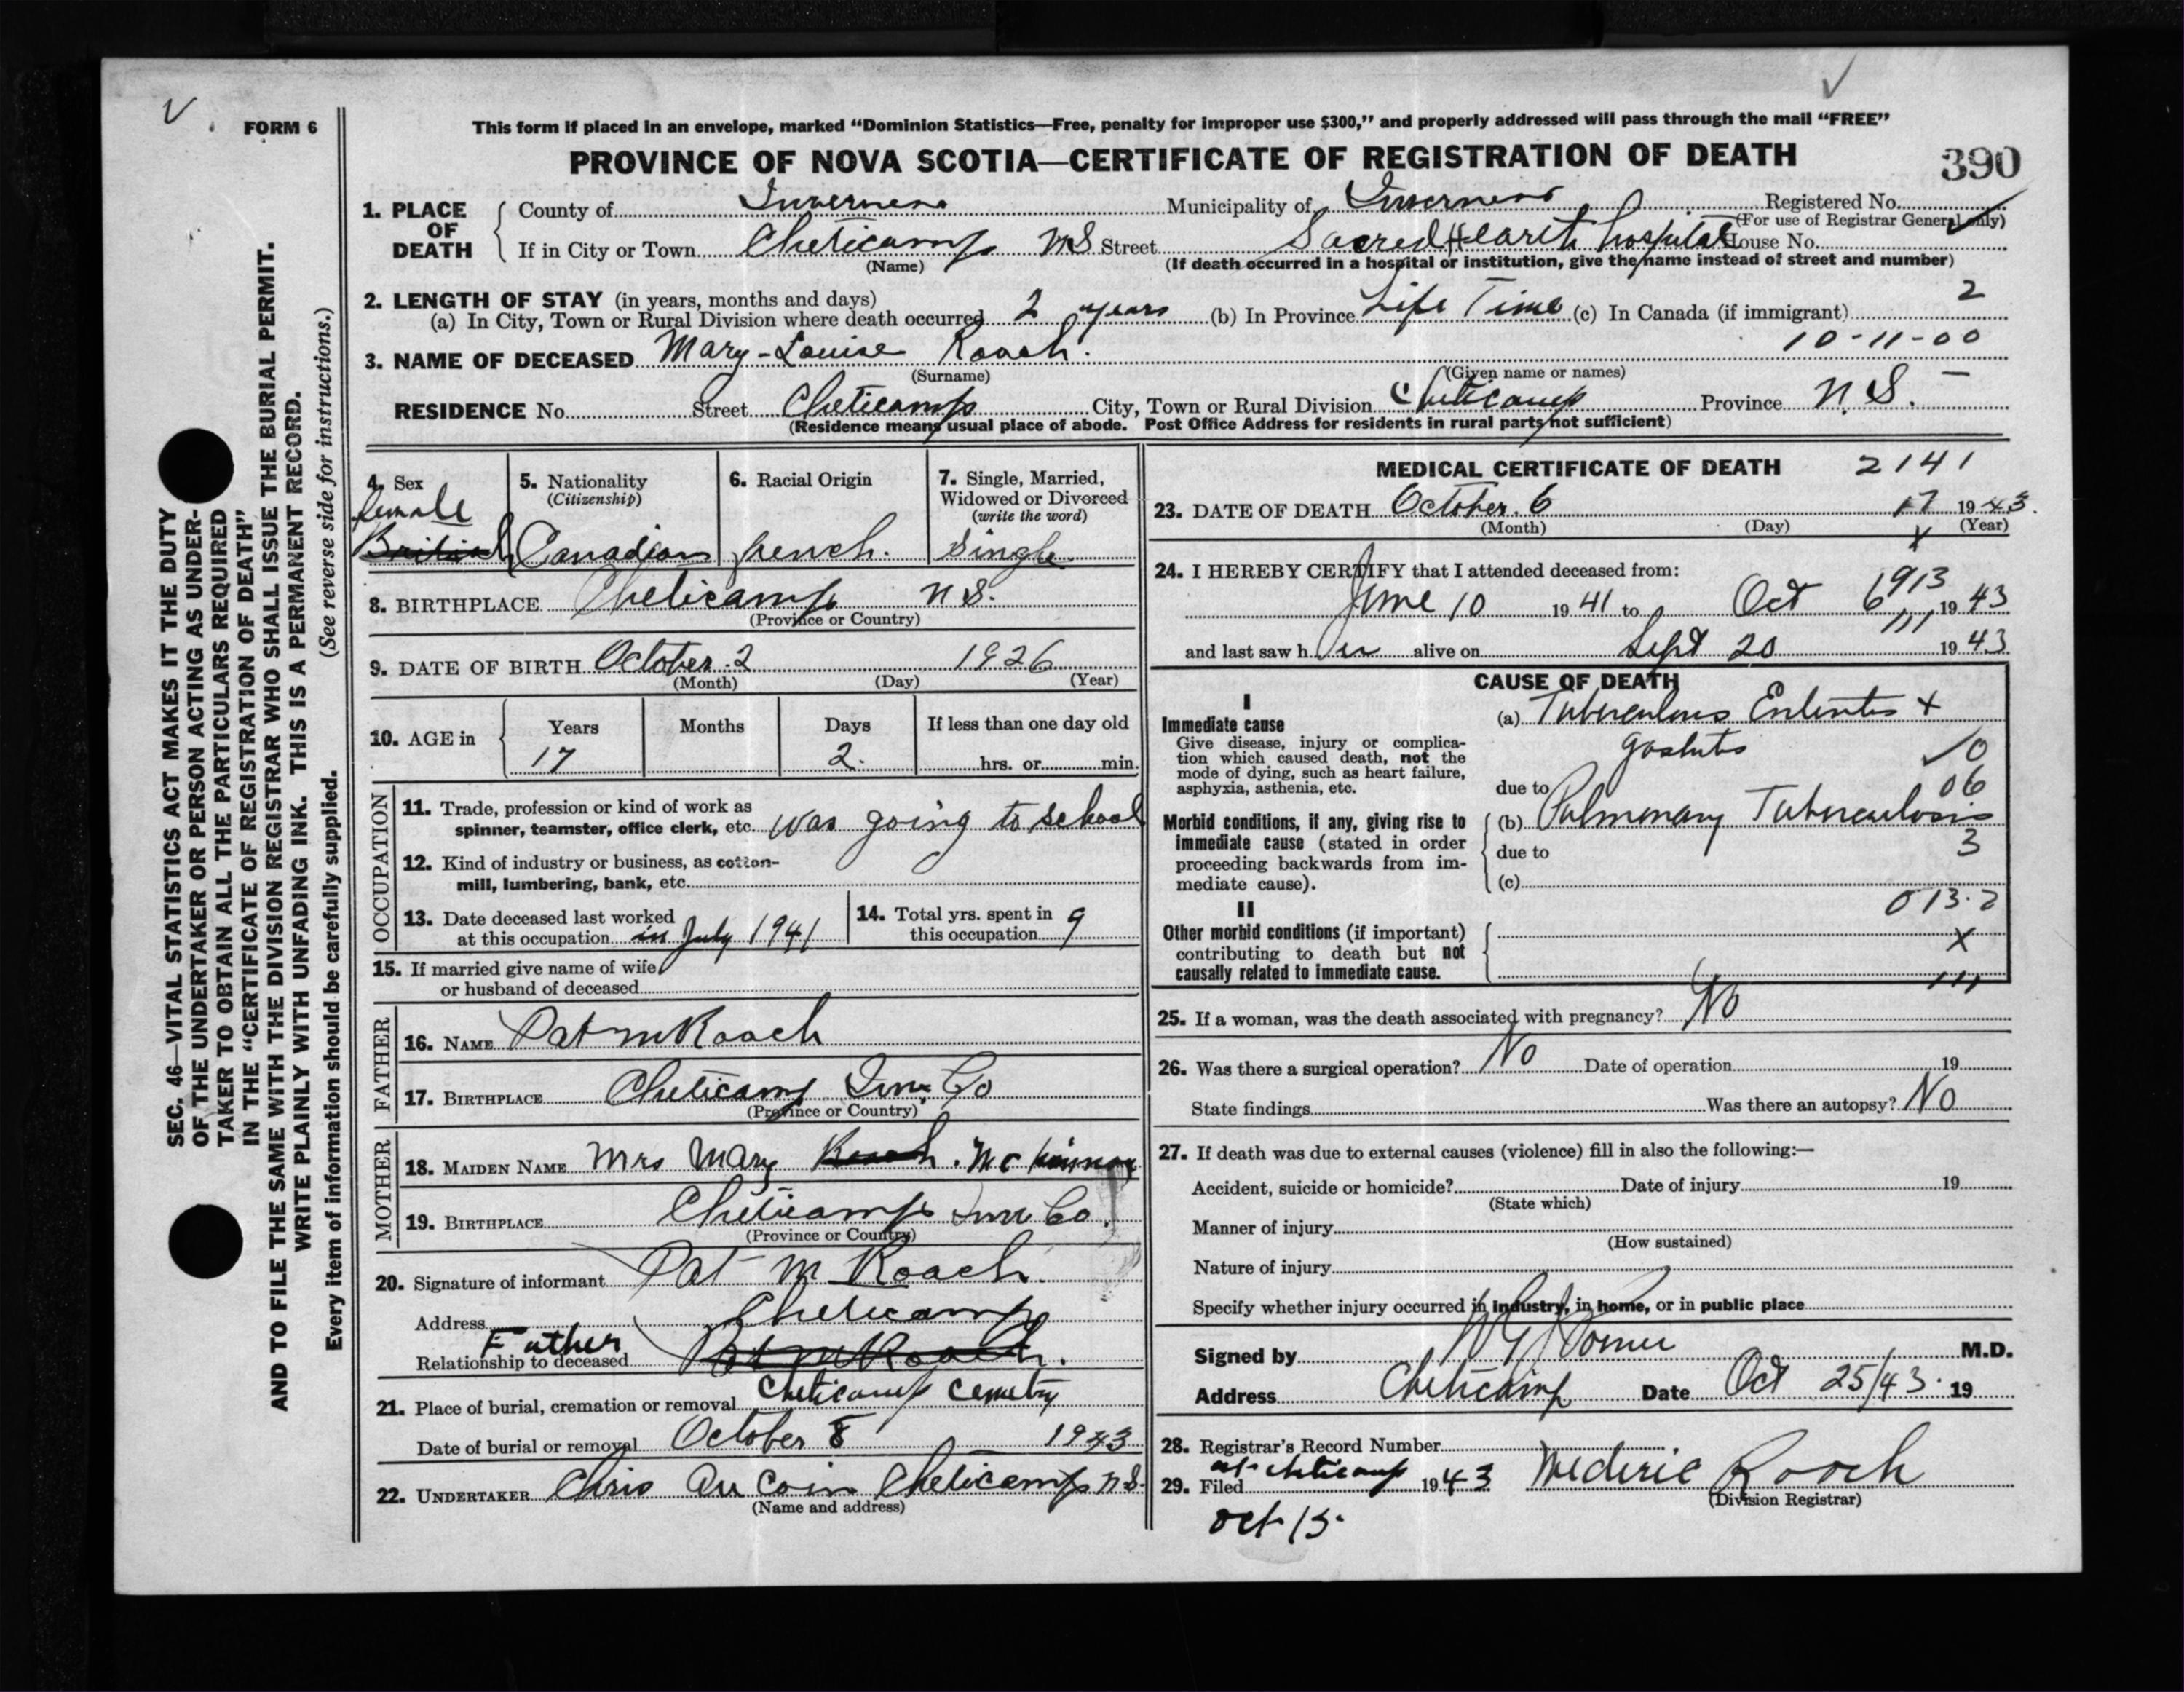 FORM 6
This form if placed in an envelope, marked “Dominion Statistics—Free, penalty for improper use $300,” and properly addressed will pass through the mail “FREE”
PROVINCE OF NOVA SCOTIA—CERTIFICATE OF REGISTRATION OF DEATH
390
1. PLACE OF DEATH County of Inverness Municipality of Inverness Registered No.
(For use of Registrar General only)
If in City or Town Cheticamp NS Street Sacred Heart hospital House No.
(Name) (If death occurred in a hospital or institution, give the name instead of street and number)
2. LENGTH OF STAY (in years, months and days)
2
(a) In City, Town or Rural Division where death occurred 2 years (b) In Province Life Time (c) In Canada (if immigrant)
10-11-00
3. NAME OF DECEASED Mary-Louise Roach.
(Surname) (Given name or names)
RESIDENCE No. Street Cheticamp City, Town or Rural Division Cheticamp Province N.S. -
(Residence means usual place of abode. Post Office Address for residents in rural parts not sufficient)
4. Sex female British
5. Nationality (Citizenship) Canadian
6. Racial Origin french.
7. Single, Married, Widowed or Divorced (write the word) Single
8. BIRTHPLACE Cheticamp N.S.
(Province or Country)
9. DATE OF BIRTH October 2 1926
(Month) (Day) (Year)
10. AGE in Years Months Days If less than one day old
17 2. hrs. or min.
OCCUPATION
11. Trade, profession or kind of work as
spinner, teamster, office clerk, etc. was going to school
12. Kind of industry or business, as cotton-
mill, lumbering, bank, etc.
13. Date deceased last worked
at this occupation in July 1941
14. Total yrs. spent in
this occupation 9
15. If married give name of wife
or husband of deceased
FATHER
16. NAME Pat M Roach
17. BIRTHPLACE Cheticamp Inv. Co
(Province or Country)
MOTHER
18. MAIDEN NAME Mrs Mary Roach. McKinnon
19. BIRTHPLACE Cheticamp Inv Co.
(Province or Country)
20. Signature of informant Pat M Roach.
Address Cheticamp
Relationship to deceased Father Pat M Roach.
21. Place of burial, cremation or removal Cheticamp Cemetry
Date of burial or removal October 8 1943
22. UNDERTAKER Chris Au Coin Cheticamp N.S.
(Name and address)
MEDICAL CERTIFICATE OF DEATH 2141
23. DATE OF DEATH October. 6 17 1943.
(Month) (Day) (Year)
X
24. I HEREBY CERTIFY that I attended deceased from:
1913
June 10 1941 to Oct 6 1943
111
and last saw h er alive on Sept 20 1943
CAUSE OF DEATH
I
Immediate cause
Give disease, injury or complica-
tion which caused death, not the
mode of dying, such as heart failure,
asphyxia, asthenia, etc.
(a) Tuberculous Enteritis +
10
due to 06
Morbid conditions, if any, giving rise to
immediate cause (stated in order
proceeding backwards from im-
mediate cause).
(b) Pulmonary Tuberculosis
due to 3
(c)
013.2
II
Other morbid conditions (if important)
contributing to death but not
causally related to immediate cause.
X
111
25. If a woman, was the death associated with pregnancy? No
26. Was there a surgical operation? No Date of operation 19
State findings Was there an autopsy? No
27. If death was due to external causes (violence) fill in also the following:—
Accident, suicide or homicide? Date of injury 19
(State which)
Manner of injury
(How sustained)
Nature of injury
Specify whether injury occurred in industry, in home, or in public place
Signed by M.D.
Address Cheticamp Date Oct 25/43. 19
28. Registrar's Record Number
29. Filed at Cheticamp 1943 Mederic Roach
(Division Registrar)
Oct 15.
SEC. 46—VITAL STATISTICS ACT MAKES IT THE DUTY
OF THE UNDERTAKER OR PERSON ACTING AS UNDER-
TAKER TO OBTAIN ALL THE PARTICULARS REQUIRED
IN THE “CERTIFICATE OF REGISTRATION OF DEATH”
AND TO FILE THE SAME WITH THE DIVISION REGISTRAR WHO SHALL ISSUE THE BURIAL PERMIT.
WRITE PLAINLY WITH UNFADING INK. THIS IS A PERMANENT RECORD.
Every item of information should be carefully supplied. (See reverse side for instructions.)